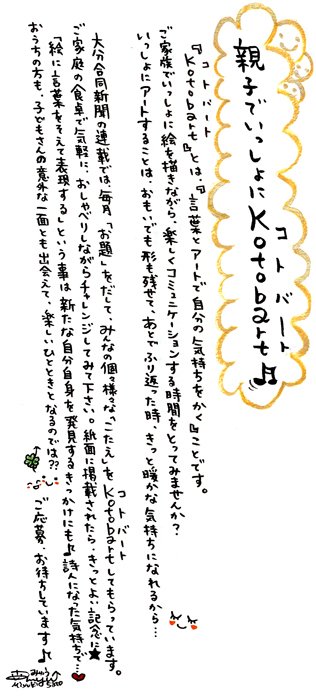 親子でいっしょにKotobart♫
コトバート
コトバート
『Kotobart』とは、『言葉とアートで自分の気持ちをかく』ことです。
ご家族でいっしょに絵を描きながら、楽しくコミュニケーションする時間をとってみませんか?
いっしょにアートすることは、おもいでも形も残せて、あとでふり返った時、きっと暖かな気持ちになれるから…
コトバート
大分合同新聞の連載では、毎月「お題」をだして、みんなの個々様々な「こたえ」をKotobartしてもらっています。
ご家庭の食卓で気軽に、おしゃべりしながらチャレンジしてみて下さい。紙面に掲載されたら、きっとよい記念に★
「絵に言葉をそえて表現する」という事は新たな自分自身を発見するきっかけにも♫詩人になった気持ちで…♥
おうちの方も、子どもさんの意外な一面とも出会えて、楽しいひとときとなるのでは??
ご応募、お待ちしています♪
みゅう